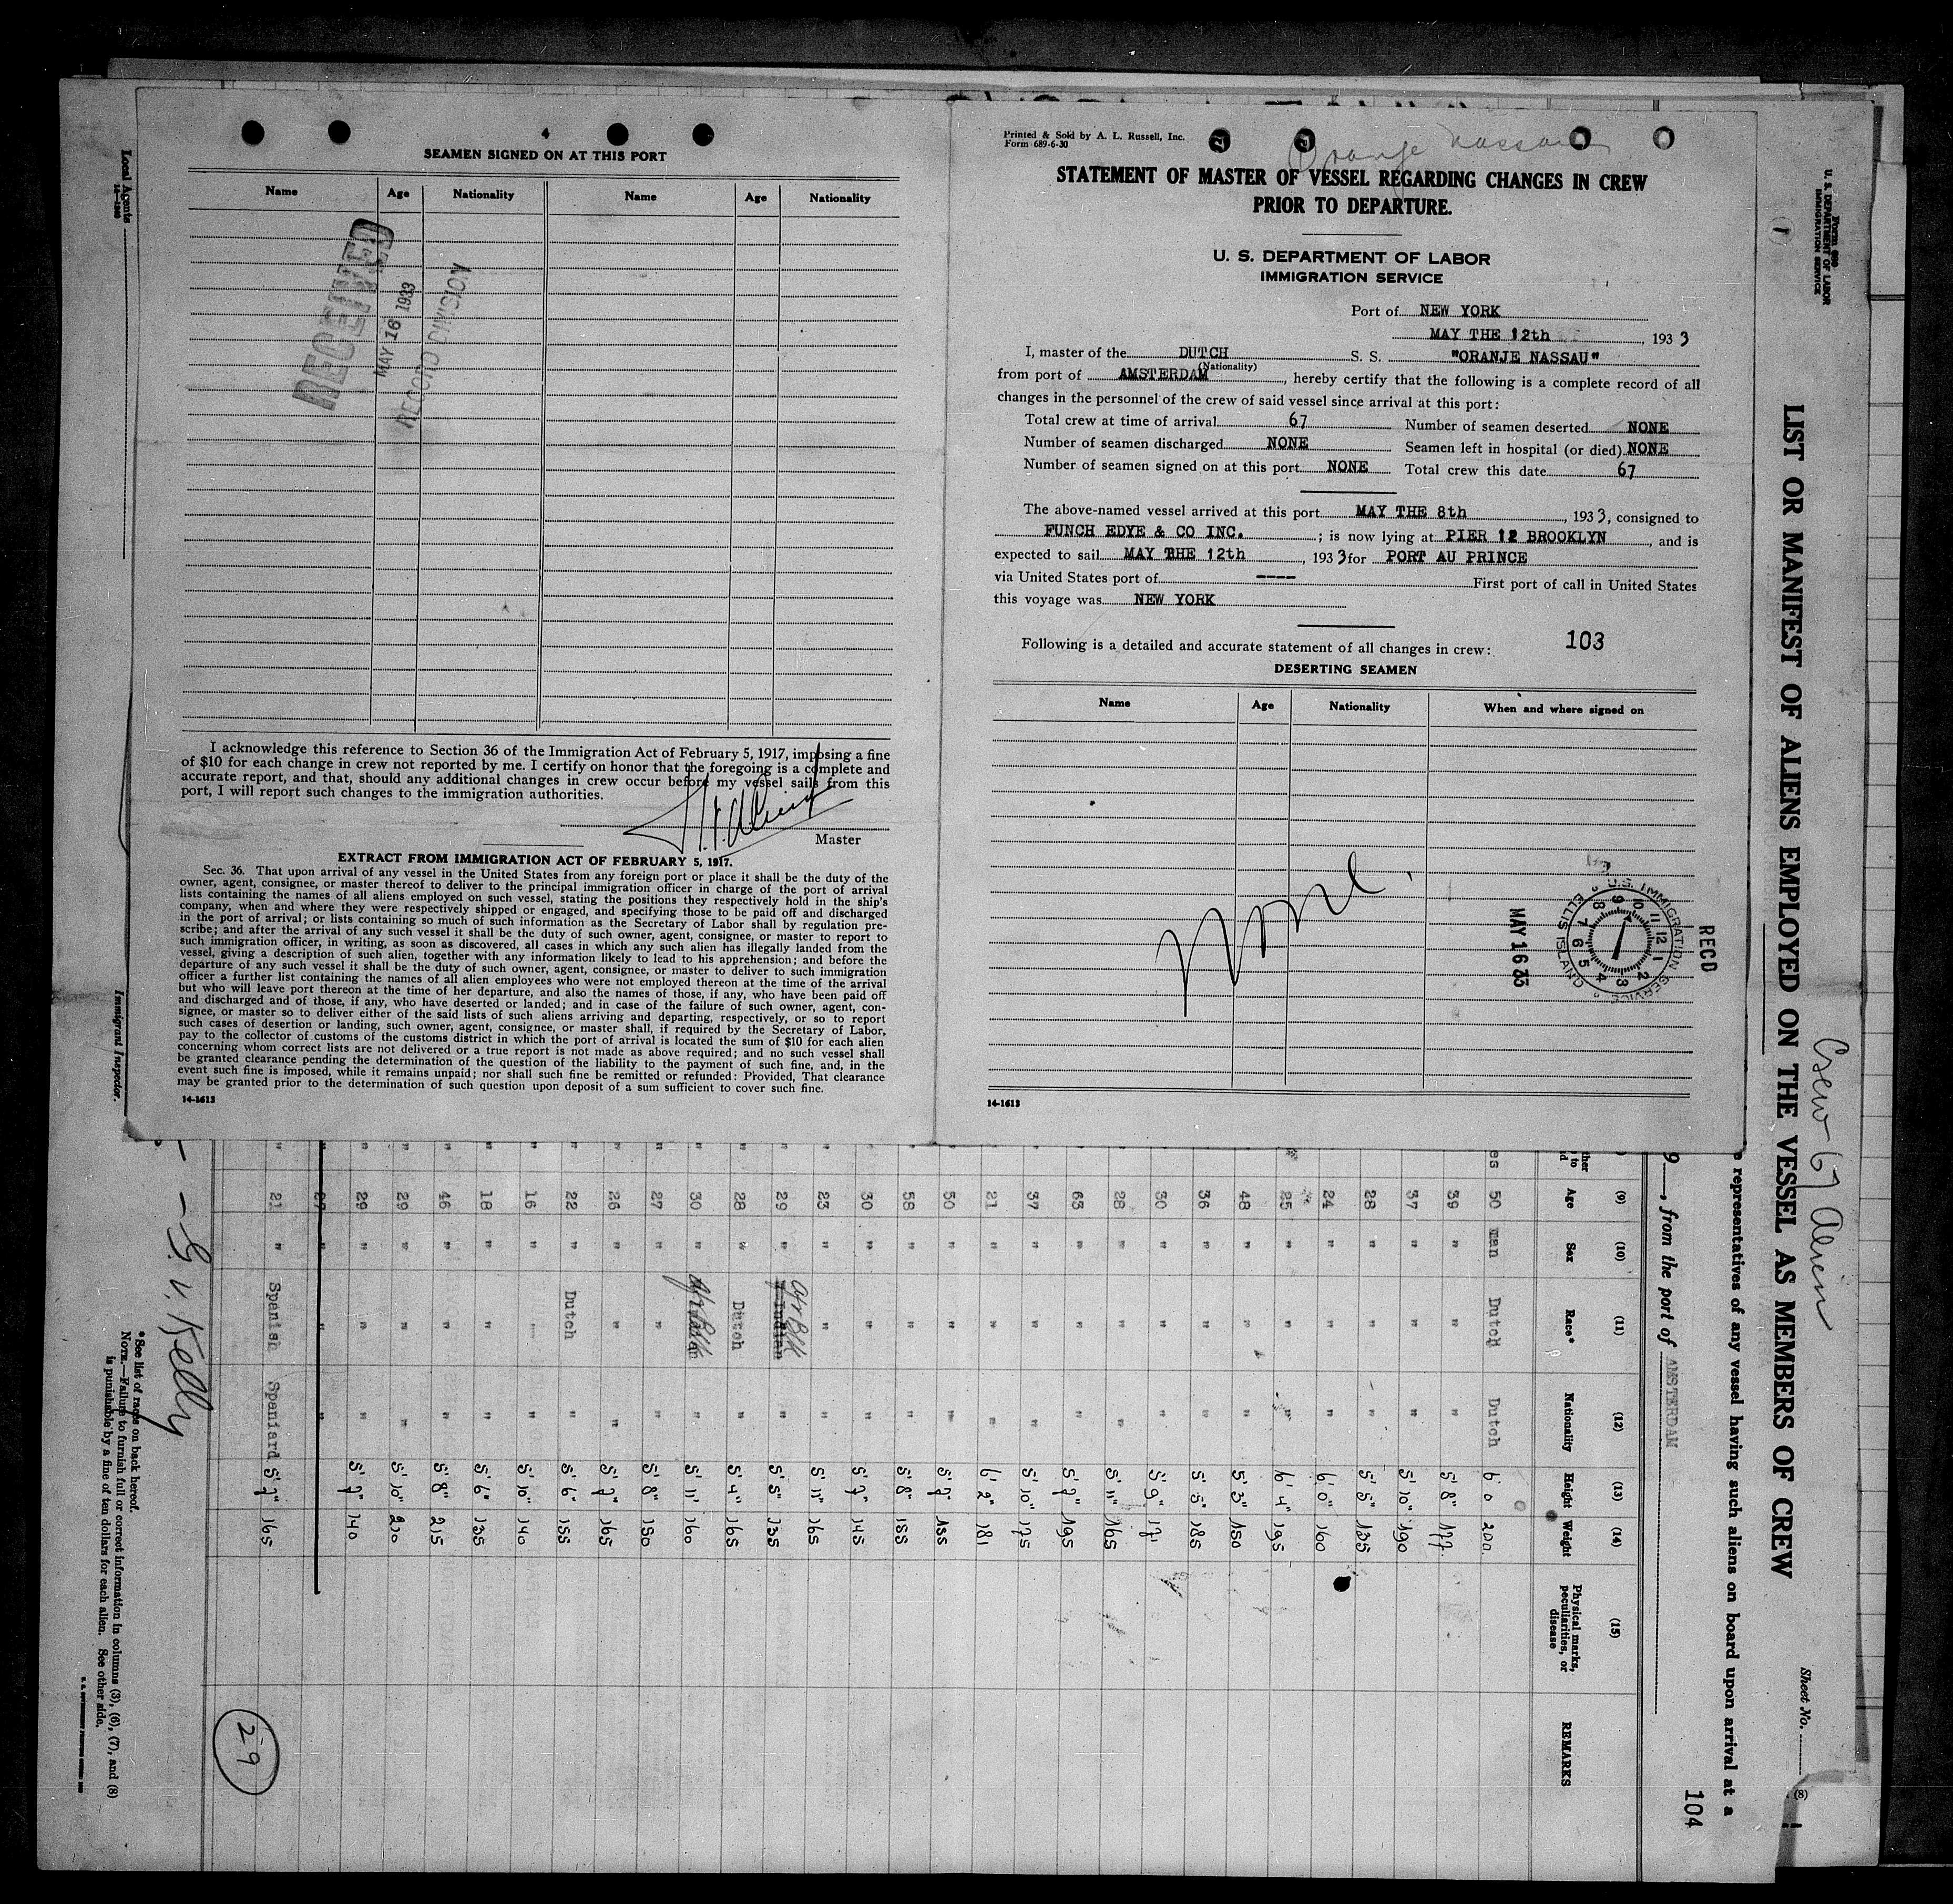 SEAMEN SIGNED ON AT THIS PORT
Name Age Nationality Name Age Nationality
RECEIVED
MAY 16 1933
RECORD DIVISION
I acknowledge this reference to Section 36 of the Immigration Act of February 5, 1917, imposing a fine
of $10 for each change in crew not reported by me. I certify on honor that the foregoing is a complete and
accurate report, and that, should any additional changes in crew occur before my vessel sails from this
port, I will report such changes to the immigration authorities.
Master
EXTRACT FROM IMMIGRATION ACT OF FEBRUARY 5, 1917.
Sec. 36. That upon arrival of any vessel in the United States from any foreign port or place it shall be the duty of the
owner, agent, consignee, or master thereof to deliver to the principal immigration officer in charge of the port of arrival
lists containing the names of all aliens employed on such vessel, stating the positions they respectively hold in the ship's
company, when and where they were respectively shipped or engaged, and specifying those to be paid off and discharged
in the port of arrival; or lists containing so much of such information as the Secretary of Labor shall by regulation pre-
scribe; and after the arrival of any such vessel it shall be the duty of such owner, agent, consignee, or master to report to
such immigration officer, in writing, as soon as discovered, all cases in which any such alien has illegally landed from the
vessel, giving a description of such alien, together with any information likely to lead to his apprehension; and before the
departure of any such vessel it shall be the duty of such owner, agent, consignee, or master to deliver to such immigration
officer a further list containing the names of all alien employees who were not employed thereon at the time of the arrival
but who will leave port thereon at the time of her departure, and also the names of those, if any, who have been paid off
and discharged and of those, if any, who have deserted or landed; and in case of the failure of such owner, agent, con-
signee, or master so to deliver either of the said lists of such aliens arriving and departing, respectively, or so to report
such cases of desertion or landing, such owner, agent, consignee, or master shall, if required by the Secretary of Labor,
pay to the collector of customs of the customs district in which the port of arrival is located the sum of $10 for each alien
concerning whom correct lists are not delivered or a true report is not made as above required; and no such vessel shall
be granted clearance pending the determination of the question of the liability to the payment of such fine, and, in the
event such fine is imposed, while it remains unpaid; nor shall such fine be remitted or refunded: Provided, That clearance
may be granted prior to the determination of such question upon deposit of a sum sufficient to cover such fine.
14-1613
Printed & Sold by A. L. Russell, Inc.
Form 689-6-30
Oranje Nassau
STATEMENT OF MASTER OF VESSEL REGARDING CHANGES IN CREW
PRIOR TO DEPARTURE.
U. S. DEPARTMENT OF LABOR
IMMIGRATION SERVICE
Port of NEW YORK
MAY THE 12th, 1933
I, master of the DUTCH S. S. "ORANJE NASSAU"
(Nationality)
from port of AMSTERDAM, hereby certify that the following is a complete record of all
changes in the personnel of the crew of said vessel since arrival at this port:
Total crew at time of arrival 67 Number of seamen deserted NONE
Number of seamen discharged NONE Seamen left in hospital (or died) NONE
Number of seamen signed on at this port NONE Total crew this date 67
The above-named vessel arrived at this port MAY THE 8th, 1933, consigned to
FUNCH EDYE & CO INC.; is now lying at PIER 12 BROOKLYN, and is
expected to sail MAY BHE 12th, 1933 for PORT AU PRINCE
via United States port of ---- First port of call in United States
this voyage was NEW YORK
Following is a detailed and accurate statement of all changes in crew: 103
DESERTING SEAMEN
Name Age Nationality When and where signed on
None.
RECD
U.S. IMMIGRATION SERVICE ELLIS ISLAND
12 1 2 3 4 5 6 7 8 9 10 11
MAY 16 33
14-1613
Local Agents
Immigrant Inspector.
U. S. DEPARTMENT OF LABOR
IMMIGRATION SERVICE
1
LIST OR MANIFEST OF ALIENS EMPLOYED ON THE VESSEL AS MEMBERS OF CREW
Crew 67 Alien
Sheet No.
(8)
representatives of any vessel having such aliens on board upon arrival at a
104
9, from the port of AMSTERDAM
(9) (10) (11) (12) (13) (14) (15)
Age Sex Race* Nationality Height Weight Physical marks, peculiarities, or disease REMARKS
es 50 man Dutch Dutch 6'0 200
" 39 " " " 5'8" 177
" 37 " " " 5'10" 190
" 28 " " " 5'5" 135
" 24 " " " 6'0" 160
" 25 " " " 6'4" 195
" 48 " " " 5'3" 150
" 36 " " " 5'5" 185
" 30 " " " 5'9" 171
" 28 " " " 5'11" 165
" 63 " " " 5'7" 195
" 37 " " " 5'10" 175
" 21 " " " 6'2" 181
" 50 " " " 5'7" 155
" 58 " " " 5'8" 185
" 30 " " " 5'7" 145
" 23 " " " 5'11" 165
" 29 " Afr Blk " 5'5" 135
" 28 " Dutch " 5'4" 165
" 30 " Afr Blk " 5'11" 160
" 27 " " " 5'8" 150
" 26 " " " 5'7" 165
" 22 " Dutch " 5'6" 155
" 16 " " " 5'10" 140
" 18 " " " 5'6" 135
" 46 " " " 5'8" 215
" 29 " " " 5'10" 210
" 29 " " " 5'7" 140
" 21 " Spanish Spaniard 5'7" 165
29
Kelly
*See list of races on back hereof.
NOTE.—Failure to furnish full or correct information in columns (3), (6), (7), and (8)
is punishable by a fine of ten dollars for each alien. See other side.